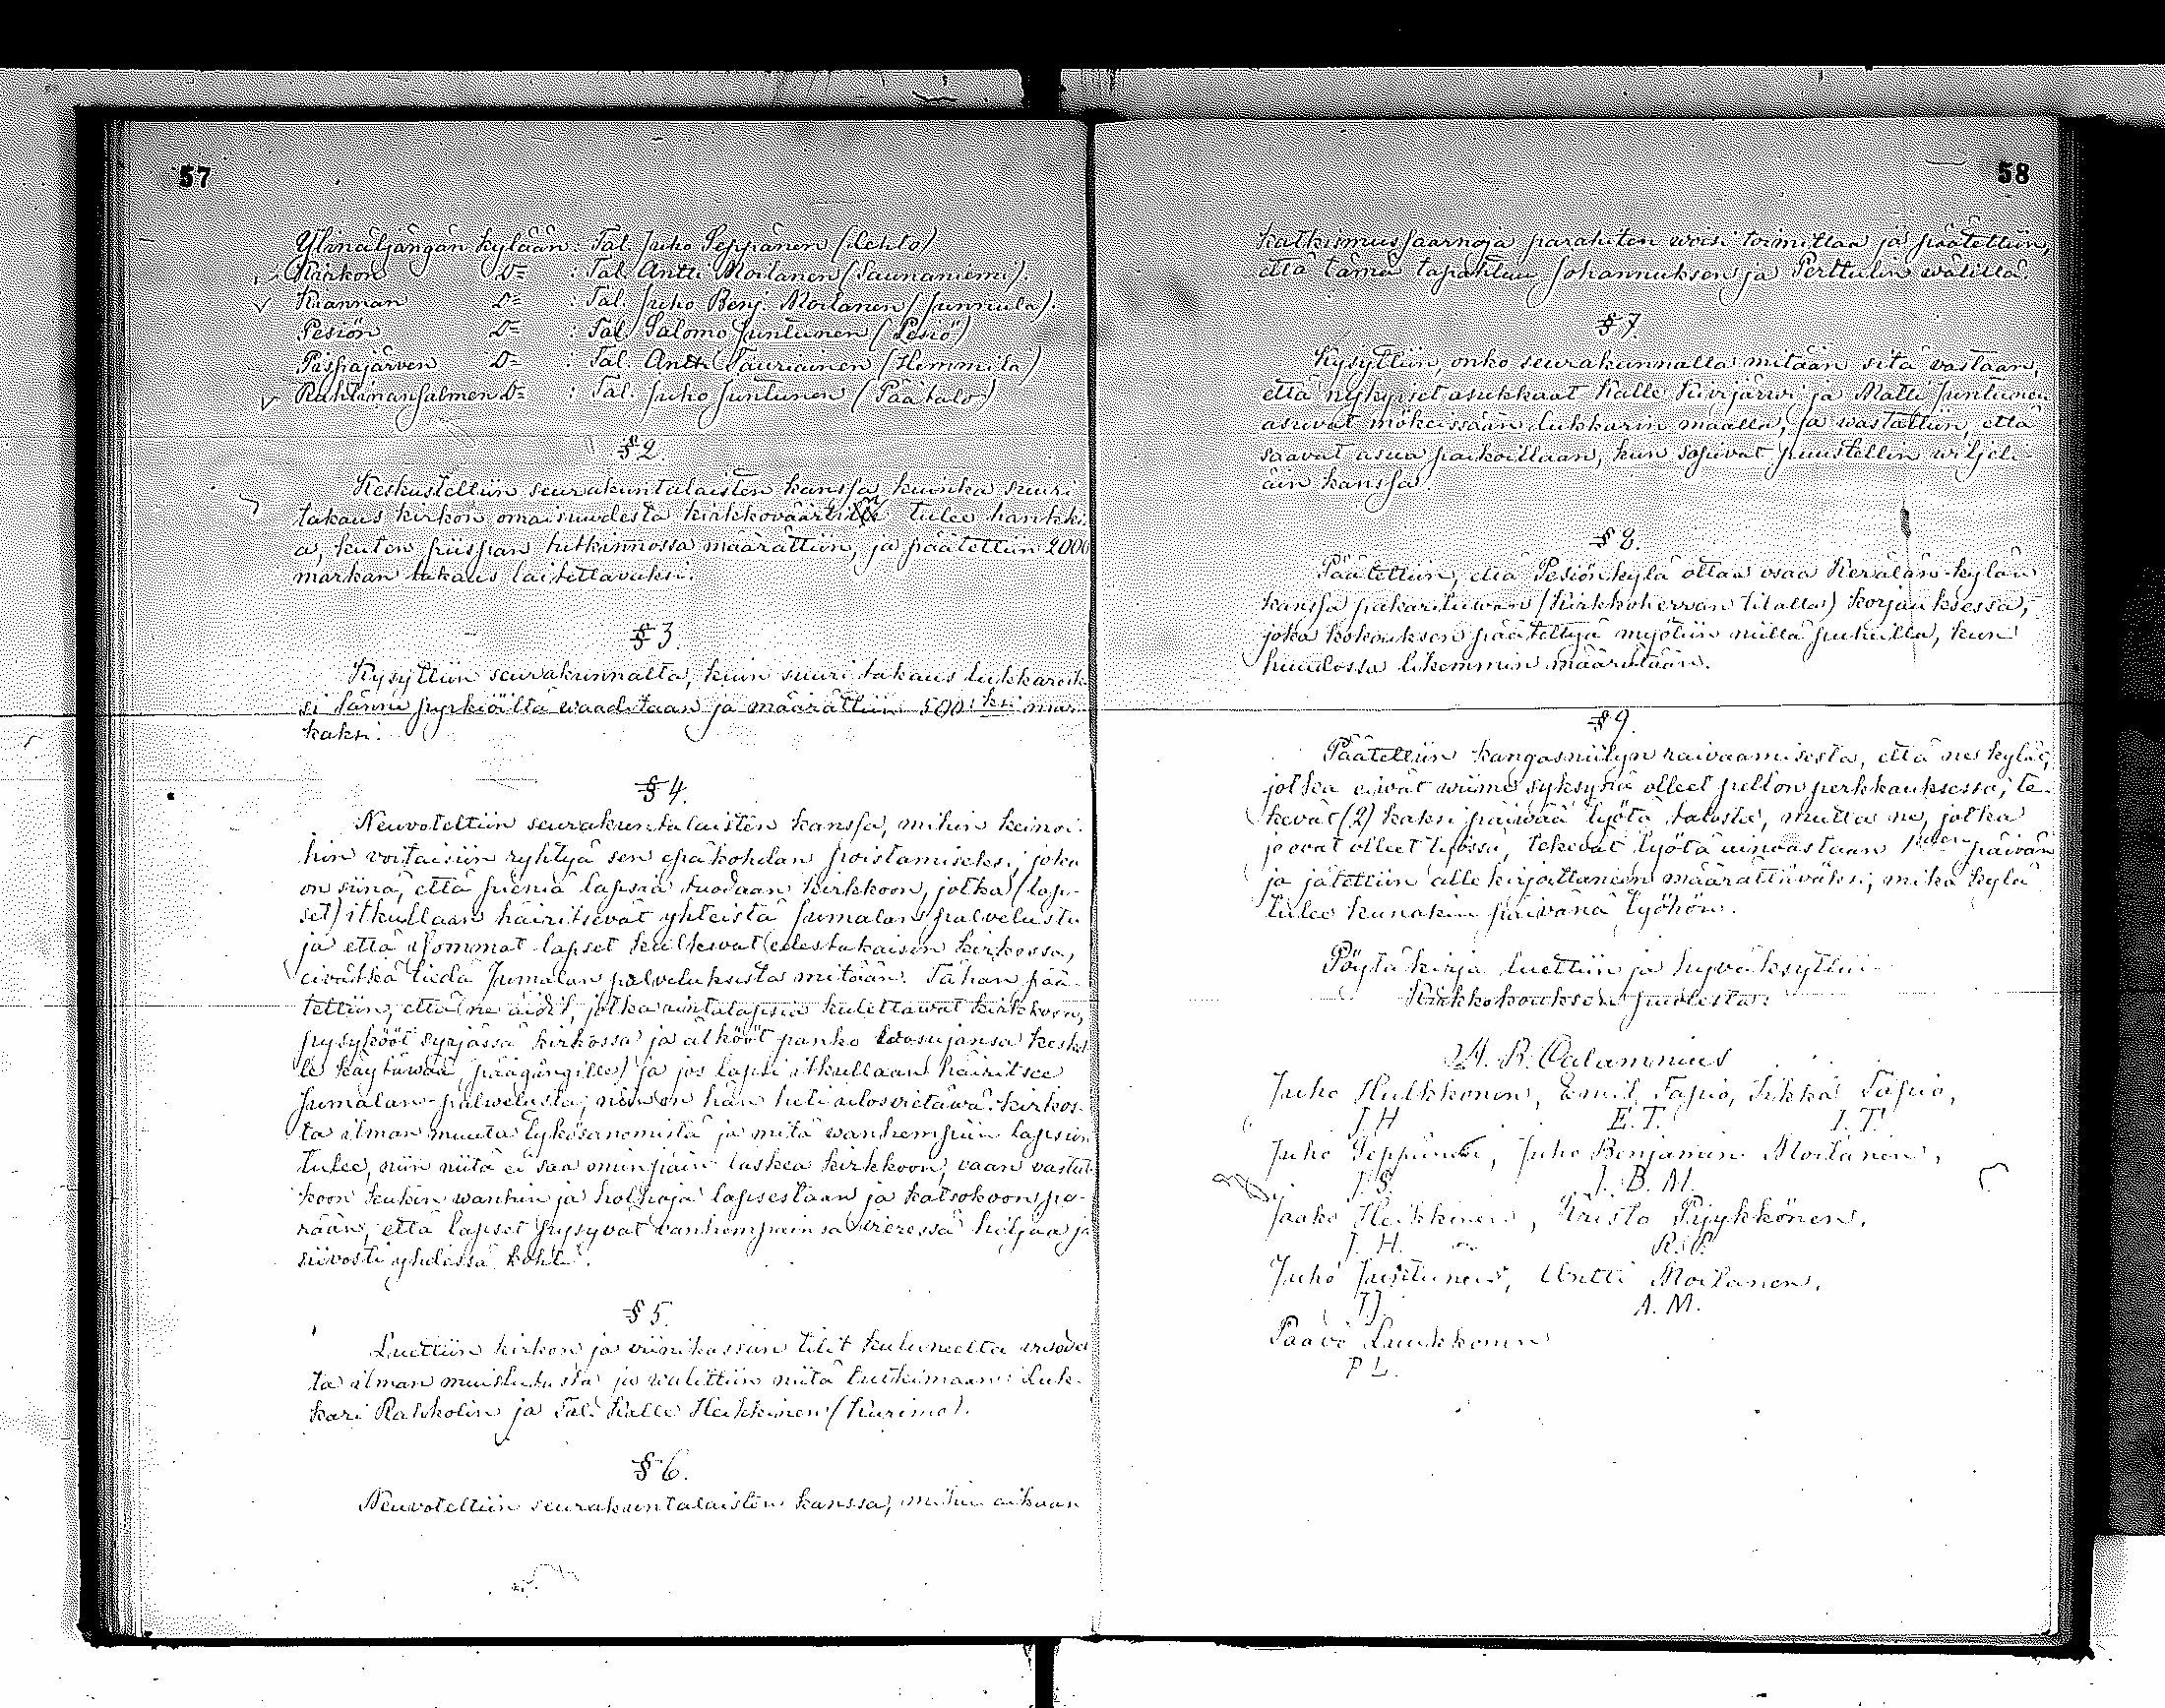 57
Ylinäljängän kylään: Tal. Juho Seppänen (Lehto)
Kirkon D= : Tal. Antti Moilanen (Saunaniemi).
Kiannan D= : Tal. Juho Benj. Moilanen (Junnula).
Pesiön D= : Tal. Salomo Juntunen (Pesiö)
Piispajärven D= : Tal. Antti Tauriainen (Hemmila)
Ruhtinansalmen D= : Tal. Juho Juntunen (Päätalo)
§ 2.
Keskusteltiin seurakuntalaisten kanssa, kuinka suuri
takaus kirkon omaisuudesta kirkkoväärtin tulee hankki
a, kuten piispan tutkinnossa määrättiin, ja päätettiin 2000
markan takaus laitettavaksi.
§ 3.
Kysyttiin seurakunnalta, kuin suuri takaus lukkarik
si tänne pyrkiöiltä waaditaan ja määrättiin 500:ksi mar-
kaksi.
§ 4.
Neuvoteltiin seurakuntalaisten kanssa, mihin keinoi-
hin voitaisiin ryhtyä sen epäkohdan poistamiseksi, joka
on siinä, että pieniä lapsia tuodaan kirkkoon, jotka (lap-
set) itkullaan häiritsevät yhteistä Jumalan palvelusta
ja että isommat lapset kulkevat edestakaisin kirkossa,
eivätkä tiedä Jumalan palveluksesta mitään. Tähän pää-
tettiin, että ne äidit, jotka rintalapsia kulettawat kirkkoon,
pysykööt syrjässä kirkossa ja älkööt panko istosijansa keskel
le käytäwää (päägångille) ja jos lapsi itkullaan häiritsee
Jumalan-palvelusta, niin on hän heti ulosvietävä kirkos-
ta ilman muuta lykösanomista ja mitä wanhempiin lapsiin
tulee, niin niitä ei saa ominpäin laskea kirkkoon, vaan vastat-
koon kukin wanhin ja holhoja lapsestaan ja katsokoon pe-
rään, että lapset pysyvät vanhempainsa vieressä hiljaa ja
siivosti yhdessä kohti.
§ 5.
Luettiin kirkon ja viinikassan tilit kuluneelta vuodel
ta ilman muistutusta ja walittiin niitä tutkimaan: Luk-
kari Rahkolin ja Tal. Kalle Heikkinen (Kurimo).
§ 6.
Neuvoteltiin seurakuntalaisten kanssa, mihin aikaan
58
Katkismussaarnoja parahiten woisi toimittaa ja päätettiin,
että tämä tapahtuu Johannuksen ja Perttulin wälillä.
§ 7.
Kysyttiin, onko seurakunnalla mitään sitä vastaan,
että nykyiset asukkaat Kalle Kivijärvi ja Matti Juntunen
asuvat mökeissään lukkarin maalla, ja wastattiin, että
saavat asua paikoillaan, kun sopivat puustellin wiljeli-
äin kanssa.
§ 8.
Päätettiin, että Pesiön kylä ottaa osaa Kerälän-kylän
kanssa pakarituwan (Kirkkoherran tilalla) korjauksessa,
joka kokouksen päätettyä myötiin niillä puheilla, kun
huudossa likemmin määrätään.
§ 9.
Päätettiin kangasniityn raivaamisesta, että ne kylät,
jotka eivät wiime syksynä olleet pellon perkkauksessa, te-
kevät (2) kaksi päivää työtä talosta, mutta ne, jotka
jo ovat olleet työssä, tekevät työtä ainoastaan 1 päivän
ja jätettiin allekirjoittaneen määrättäväksi, mikä kylä
tulee kunakin päivänä työhön.
Pöytäkirja luettiin ja hyväksyttiin
Kirkkokokouksen puolesta:
A. R. Calamnius
Juho Hulkkonen, Emil Tapio, Iikka Tapio,
J. H E. T. I. T.
Juho Seppänen, Juho Benjamin Moilanen,
J. S. J. B. M.
Jaako Heikkinen, Kristo Pyykkönen,
J. H. K. P.
Juho Juntunen, Antti Moilanen,
J. J. A. M.
Paavo Luukkonen
P L.